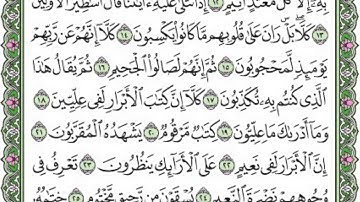 بِهِۦٓ إِلَّا كُلُّ مُعْتَدٍ أَثِيمٍ ١٢ إِذَا تُتْلَىٰ عَلَيْهِ ءَايَٰتُنَا قَالَ أَسَٰطِيرُ ٱلْأَوَّلِينَ
١٣ كَلَّا بَلْ رَانَ عَلَىٰ قُلُوبِهِم مَّا كَانُوا۟ يَكْسِبُونَ ١٤ كَلَّآ إِنَّهُمْ عَن رَّبِّهِمْ
يَوْمَئِذٍ لَّمَحْجُوبُونَ ١٥ ثُمَّ إِنَّهُمْ لَصَالُوا۟ ٱلْجَحِيمِ ١٦ ثُمَّ يُقَالُ هَٰذَا
ٱلَّذِى كُنتُم بِهِۦ تُكَذِّبُونَ ١٧ كَلَّآ إِنَّ كِتَٰبَ ٱلْأَبْرَارِ لَفِى عِلِّيِّينَ ١٨
وَمَآ أَدْرَىٰكَ مَا عِلِّيُّونَ ١٩ كِتَٰبٌ مَّرْقُومٌ ٢٠ يَشْهَدُهُ ٱلْمُقَرَّبُونَ ٢١
إِنَّ ٱلْأَبْرَارَ لَفِى نَعِيمٍ ٢٢ عَلَى ٱلْأَرَآئِكِ يَنظُرُونَ ٢٣ تَعْرِفُ فِى
وُجُوهِهِمْ نَضْرَةَ ٱلنَّعِيمِ ٢٤ يُسْقَوْنَ مِن رَّحِيقٍ مَّخْتُومٍ ٢٥ خِتَٰمُهُۥ